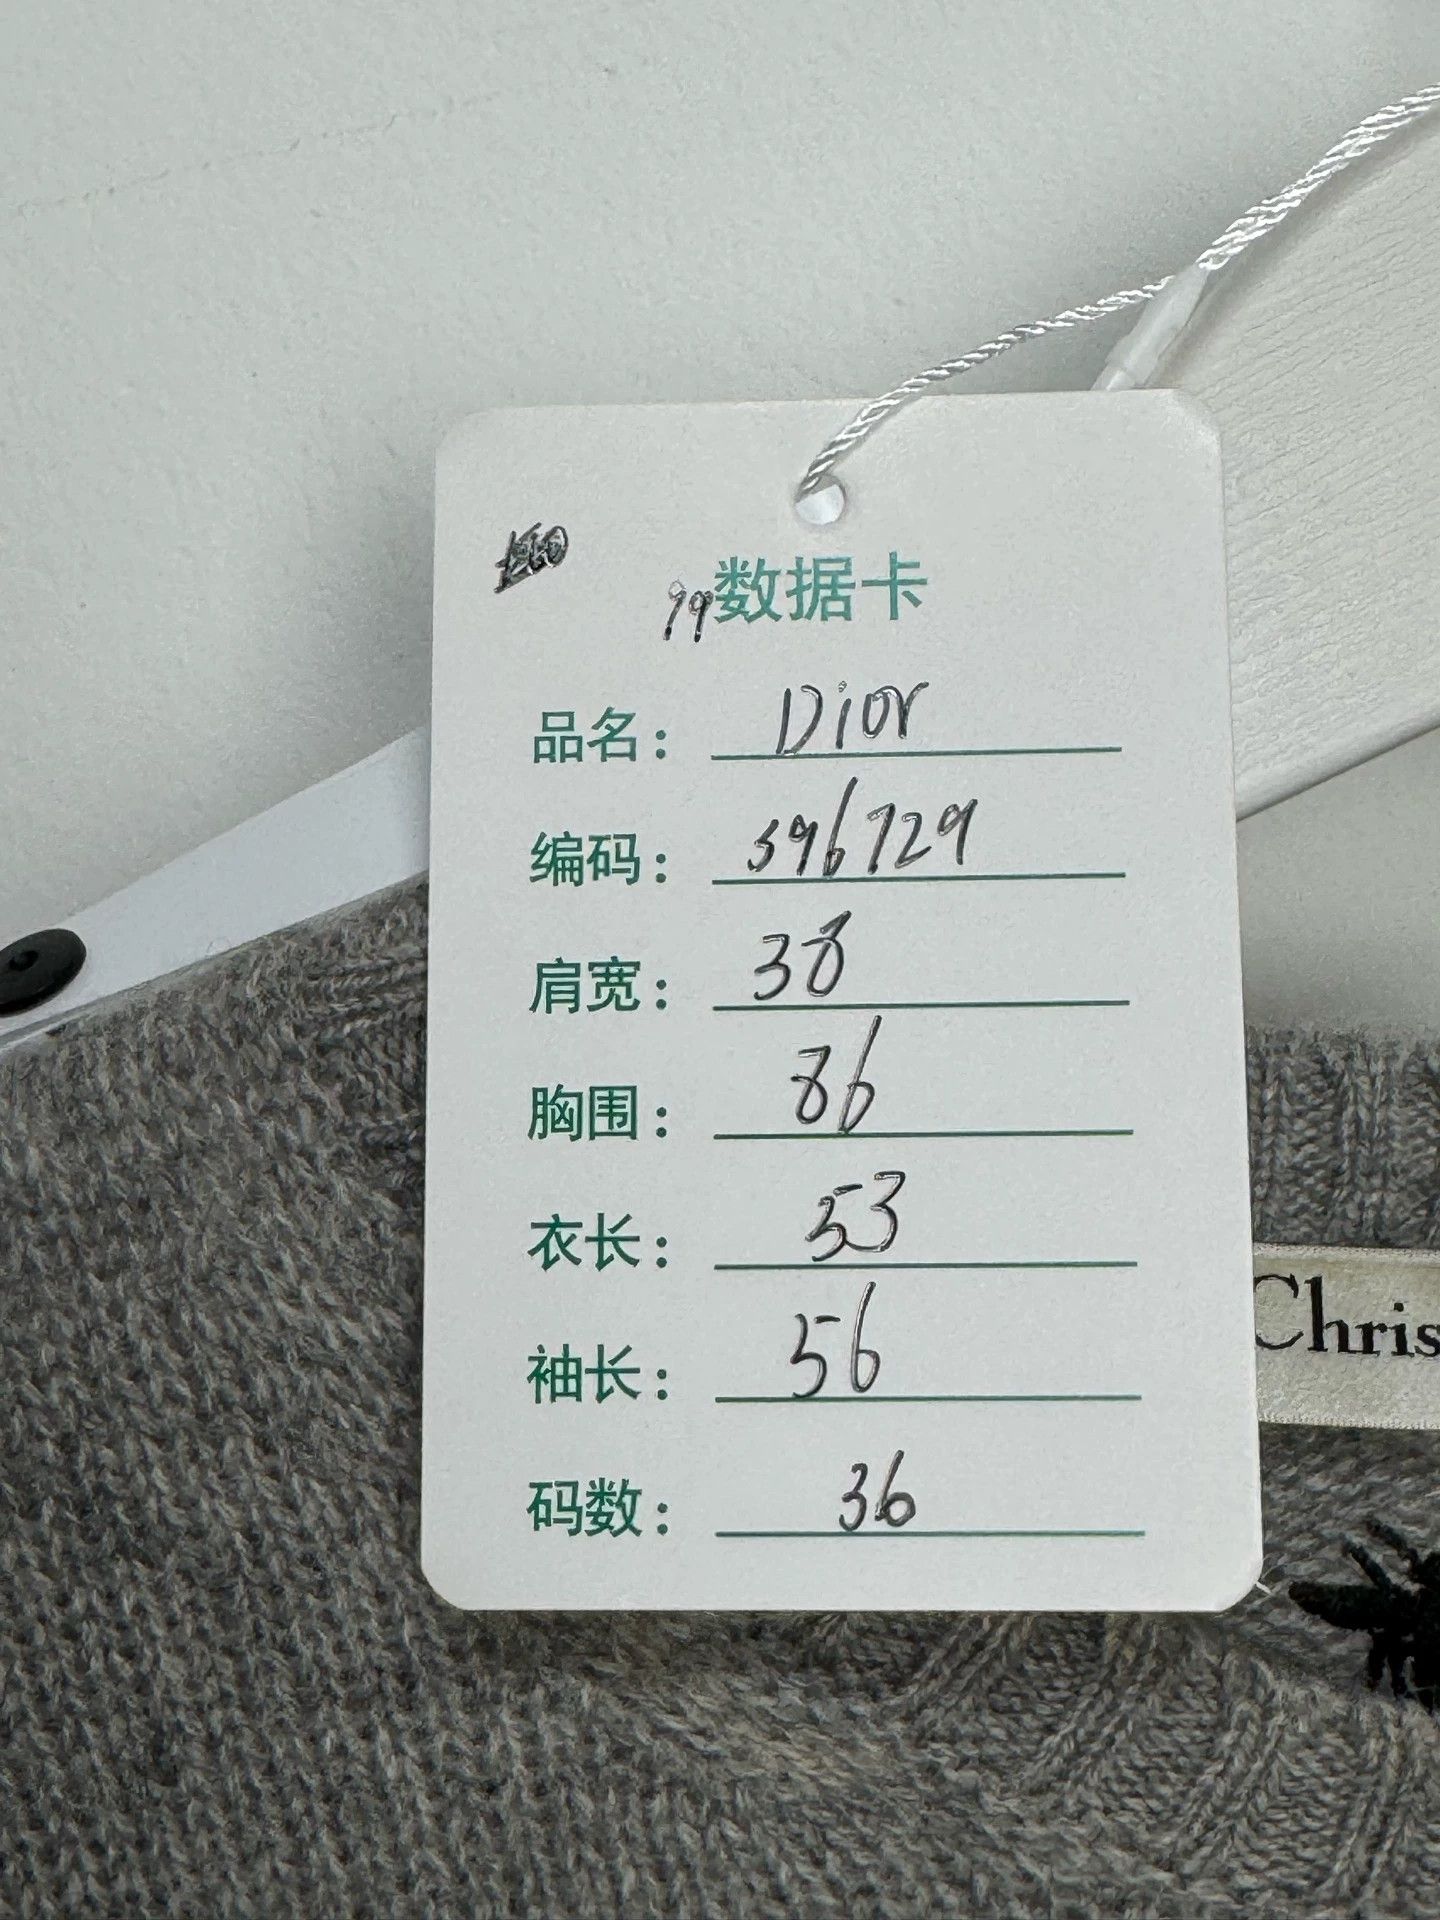 99 数据卡
品名: Dior
编码: 396729
肩宽: 38
胸围: 86
衣长: 53
袖长: 56
码数: 36
Chris